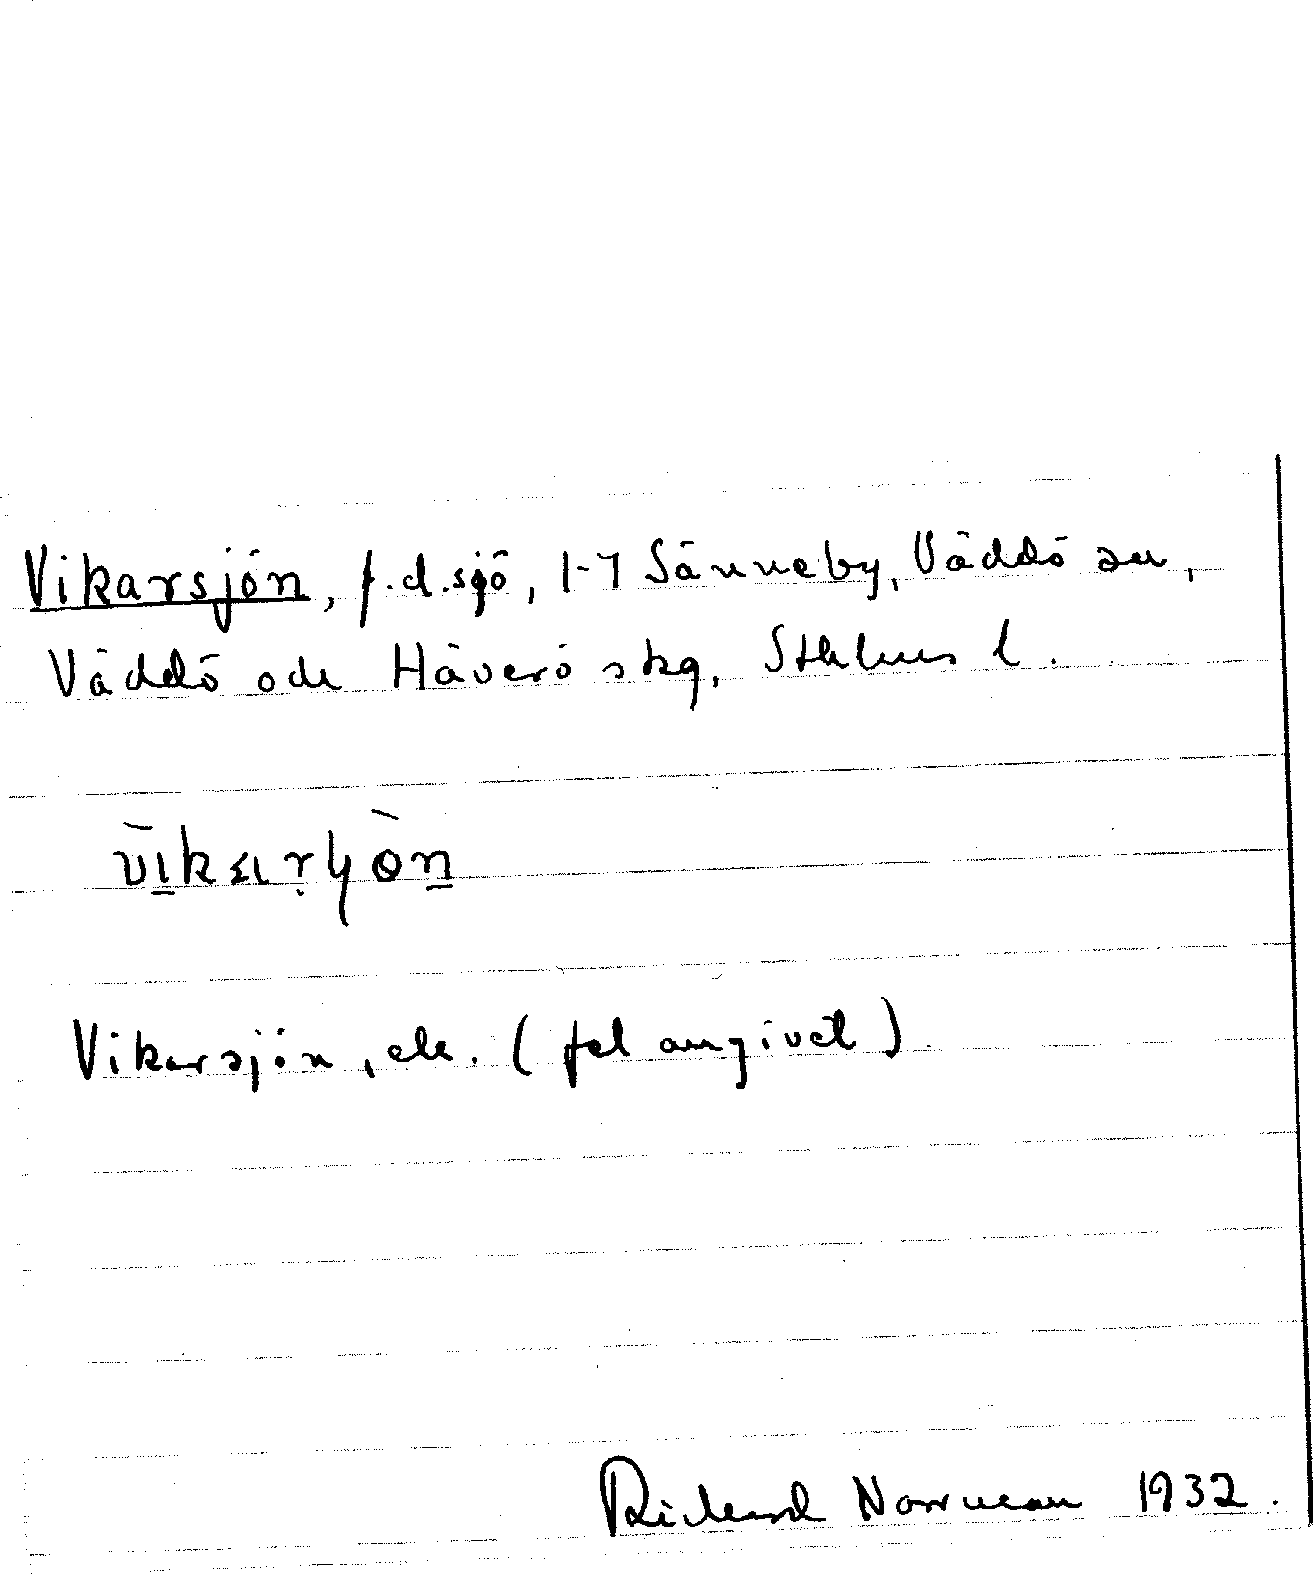 Vikarsjön, f.d. sjö, 1-7 Sänneby, Väddö sn,
Väddö och Häverö skg, Sthlms l.
Vikarsjön, ek. (fel angivet)
Richard Norrman 1932.